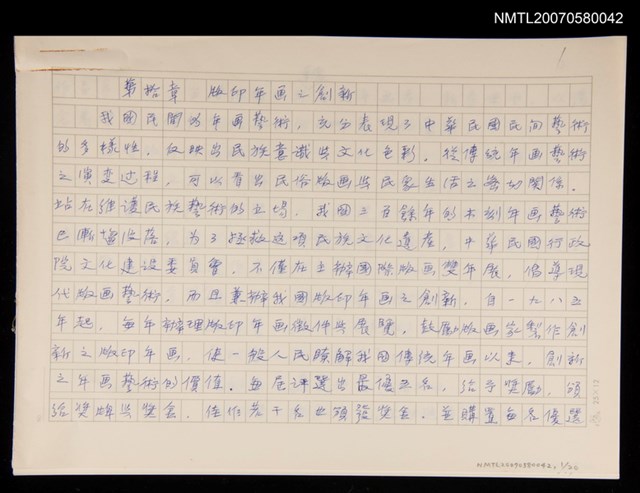 NMTL20070580042
1
第拾章 版印年画之創新
我國民間的年画藝術，充分表現了中華民國民间藝術
的多樣性，反映出民族意識與文化色彩。從傳統年画藝術
之演变过程，可以看出民俗版画與民家生活之密切関係。
站在維護民族藝術的立場，我國三百餘年的木刻年画藝術
已漸墮沒落，为了拯救这項民族文化遺產，中華民國行政
院文化建設委員會，不僅在主辦國際版画雙年展，倡導現
代版画藝術，而且兼辦我國版印年画之創新，自一九八五
年起，每年辦理版印年画徵件與展覽，鼓勵版画家製作創
新之版印年画，使一般人民瞭解我國傳統年画以来，創新
之年画藝術的價值。每屆評選出最優五名，給予獎勵，頒
給獎牌與獎金，佳作若干名也頒發獎金，並購置每名優選
25×12
NMTL20070580042, 1/26